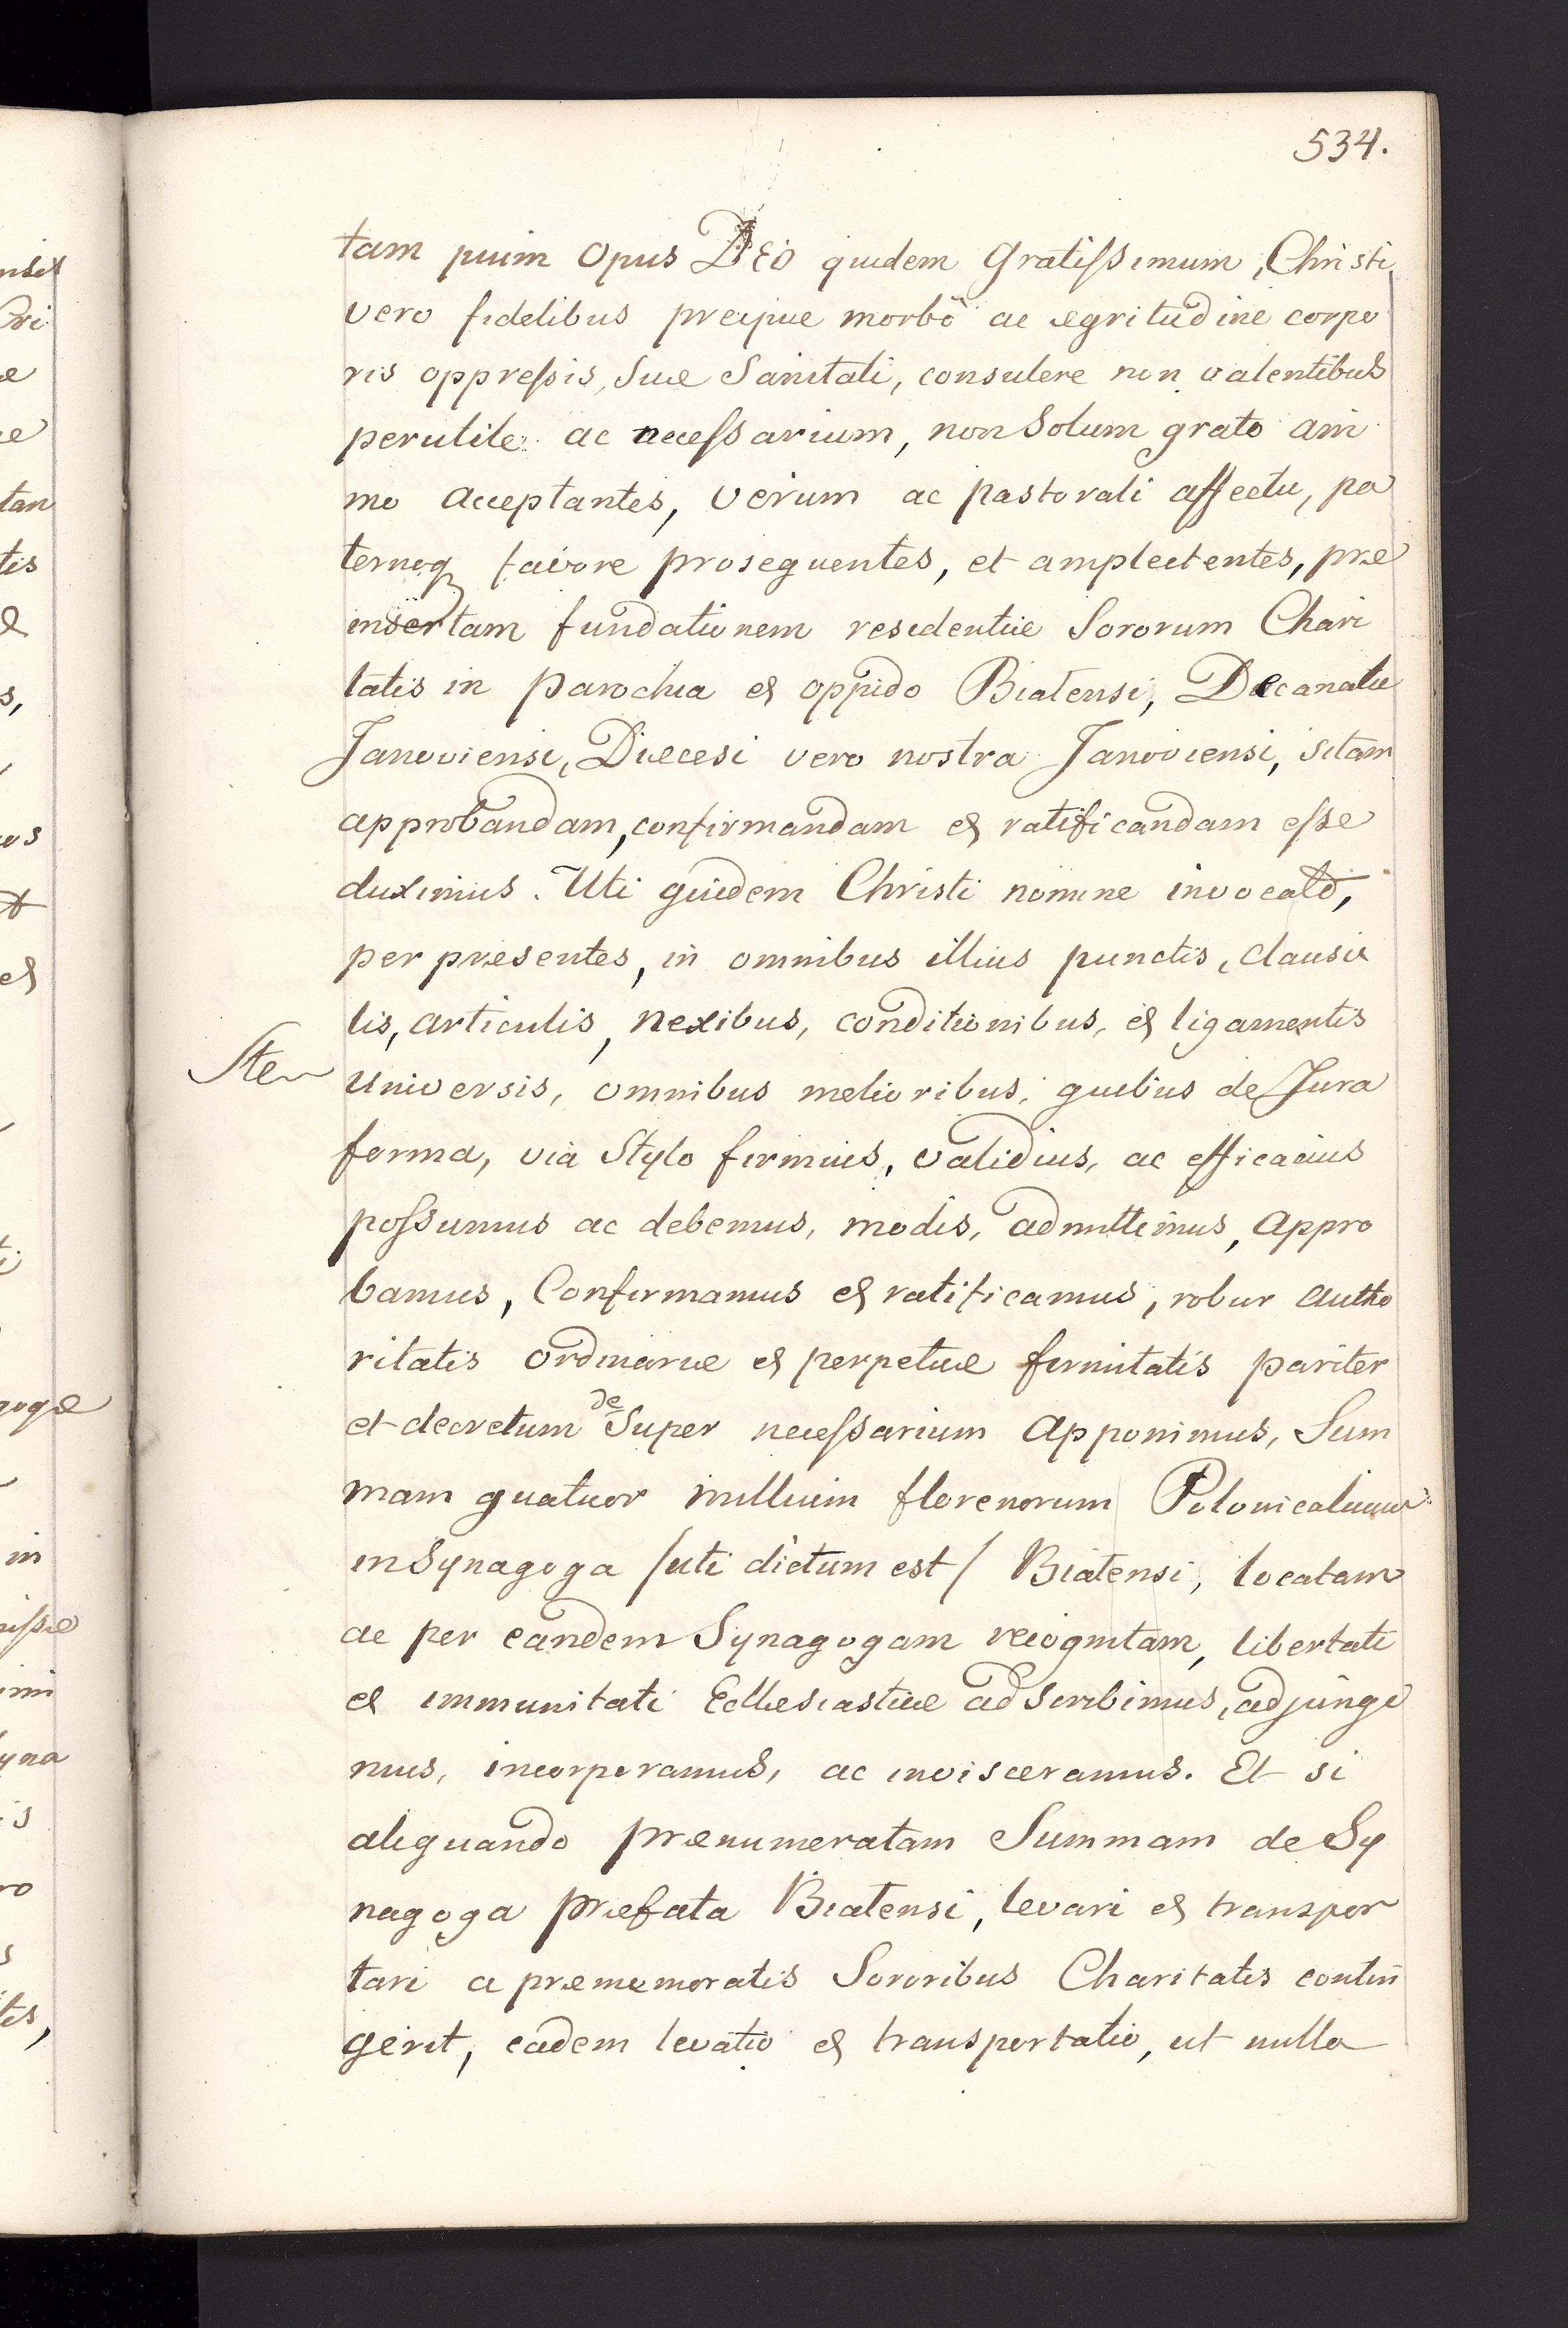 534.
tam piuim Opus DEO quidem Gratissimum, Christi
vero fidelibus precipue morbô ac ægritudine corpo
ris oppressis, Suæ Sanitati, consulere non valentibus
perutile ac necessarium, non Solum grato ani
mo acceptantes, verum ac pastorali affectu, pa
ternoq favore prosequentes, et amplectentes, præ
insertam fundationem residentiæ Sororum Chari
tatis in Parochia et oppido Bialensi, Decanatu
Janoviensi, Diæcesi vero nostra Janoviensi, sitam
approbandam, confirmandam et ratificandam esse
duximus. Uti quidem Christi nomine invocato,
per præsentes, in omnibus illius punctis, clausu
lis, articulis, nexibus, conditionibus, et ligamentis
universis, omnibus melioribus, quibus de Jura
forma, via Stylo firmius, validius, ac efficacius
possumus ac debemus, modis, admittimus, appro
bamus, Confirmamus et ratificamus, robur autho
ritatis ordinariæ et perpetuæ firmitatis pariter
et decretum de Super necessarium apponimus, Sum
mam quatuor millium florenorum Polonicalium
in Synagoga /uti dictum est/ Bialensi, locatam
ac per eandem Synagogam recognitam, libertati
et immunitati Ecclesiasticæ adscribimus, adjungi
mus, incorporamus, ac invisceramus. Et si
aliquando prænumeratam Summam de Sy
nagoga præfata Bialensi, levari et transpor
tari a præmemoratis Sororibus Charitatis contin
gerit, eadem levatio et transportatio, ut nulla